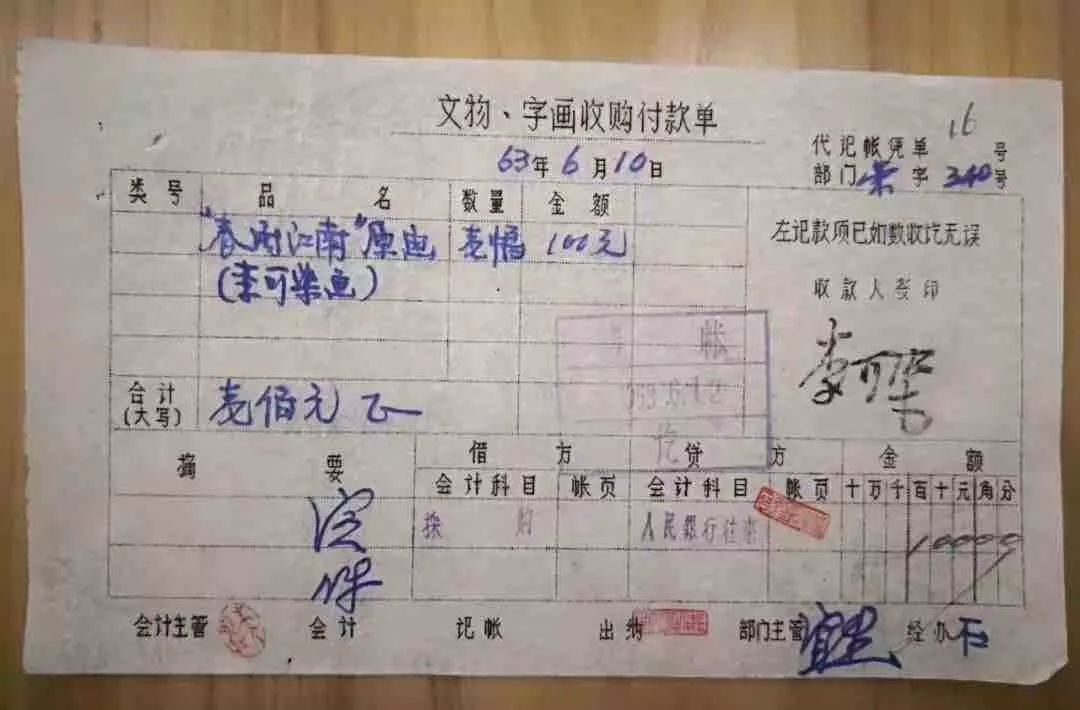 文物、字画收购付款单
16
63年6月10日
代记帐凭单 号
部门 荣 字 240号
类号 品 名 数量 金额
"春雨江南"原画 壹幅 100元
(李可染画)
左记款项已如数收讫无误
收款人签印
李可染
帐
讫
合计
(大写) 壹佰元正
摘 要 借 方 贷 方 金 额
会计科目 帐页 会计科目 帐页 十万千百十元角分
採 购 人民银行往来 10000
会计主管 会计 记帐 出纳 部门主管 经办